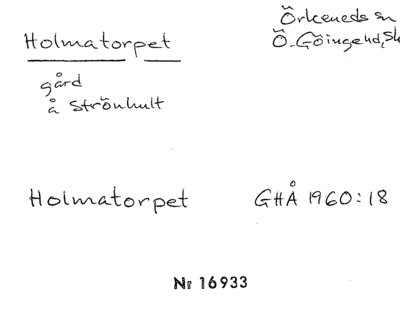 Holmatorpet
Örkeneds sn
Ö-Göingehd, Sk
gård
å Strönhult
Holmatorpet GHÅ 1960:18
№ 16933